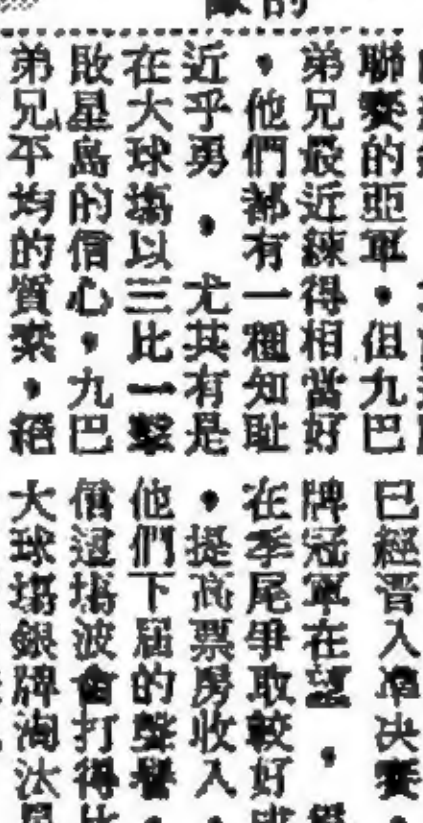 聯賽的亞軍。但九巴
弟兄最近練得相當好
，他們都有一種知恥
近乎勇。尤其有是
在大球塲以三比一擊
敗星島的信心，九巴
弟兄平均的質素，絕
已經晋入準决賽，
牌冠軍在望，
在季尾爭取較好
，提高票房收入，
他們下屆的聲譽，
信這塲波會打得比
大球塲銀牌淘汰